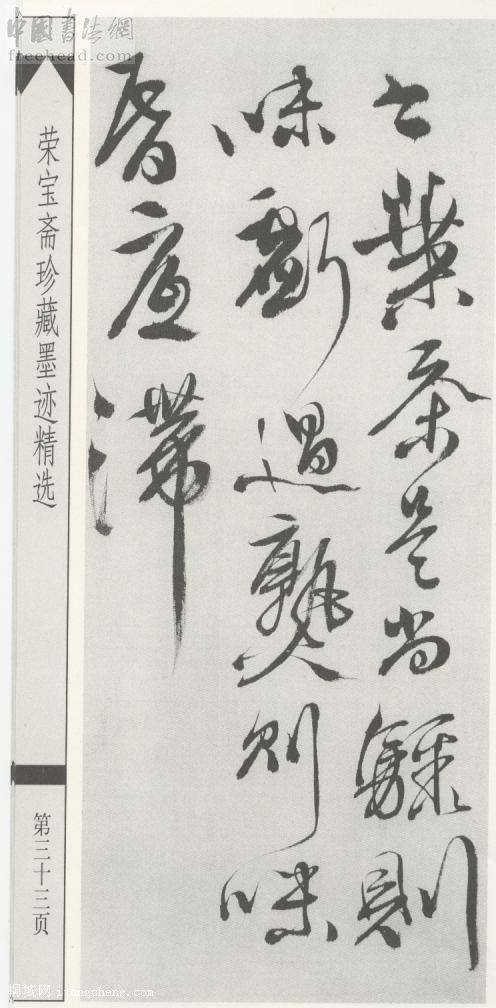 中國書法網
freehead.com
出葉茶是尚驟則
味虧過熟則味
昏底滯
荣宝斋珍藏墨迹精选
第三十三页
桐城网 itongcheng.com